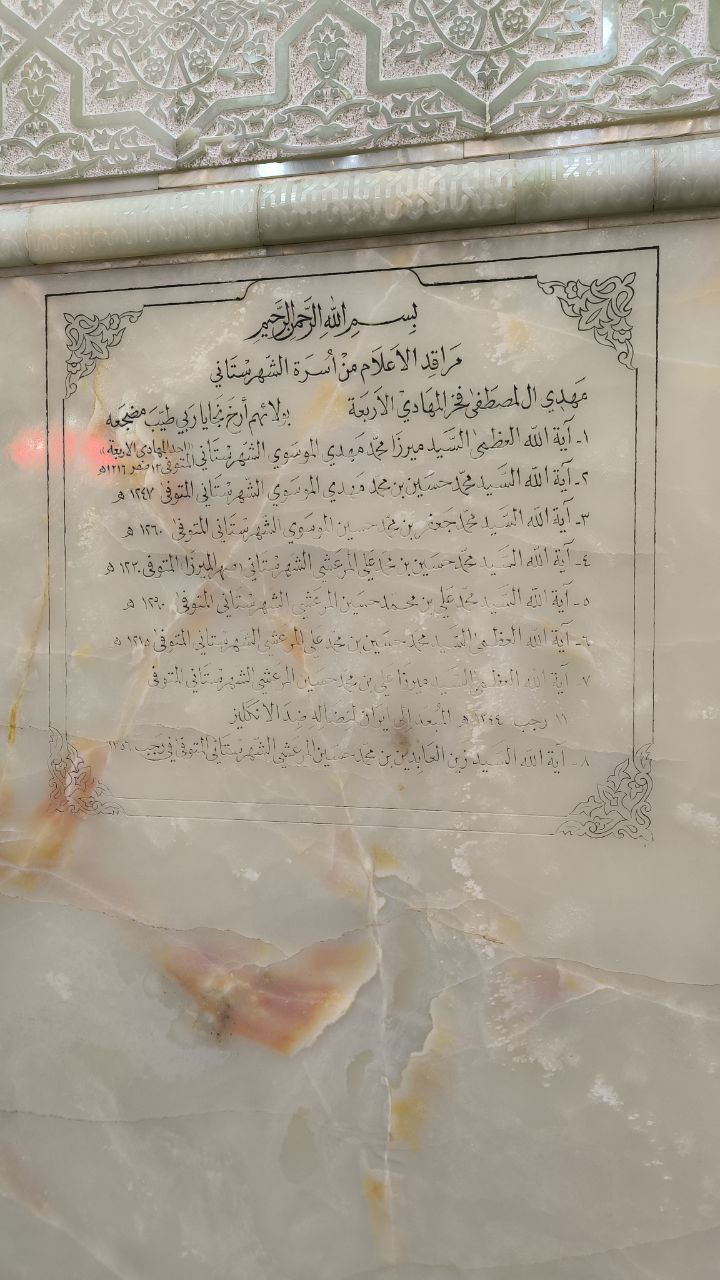 بِسْمِ اللهِ الرَّحْمٰنِ الرَّحِيْمِ
مَرَاقِد الاَعلَام مِنْ أُسْرَة الشَّهرِسْتَاني
مَهْدِي ال المصطَفىٰ فخر المهَادِيْ الأربَعَة بولائهم أرخ نجايا رَبي طيّبَ مضجعه
١- آيَة اللّه العظمىٰ السَّيد ميرزَا محمّد مَهدِي الموسَوي الشَّهرِسْتَاني المتوفىٰ ١٢ صفر ١٢١٦ هـ «احد المهادي الاربعة»
٢- آيَة اللّه السَّيد محمّد حسَين بن محمد مَهدِي الموسَوي الشَّهرِسْتَاني المتوفىٰ ١٢٤٧ هـ
٣- آيَة اللّه السَّيد محمّد جَعفر بن محمّد حسين الموسَوي الشهرِسْتَاني المتوفىٰ ١٢٦٠ هـ
٤- آيَة اللّه السَّيد محمّد حسَين بن محمّد علي المرعَشي الشهرِسْتَاني صهر الميرزَا المتوفى ١٢٣٠ هـ
٥- آيَة اللّه السَّيد محمّد علي بن محمد حسَين المرعَشي الشهرِسْتَاني المتوفىٰ ١٢٩٠ هـ
٦- آيَة اللّه العظمىٰ السَّيد محمّد حسَين بن محمّد علي المرعَشي الشهرِسْتَاني المتوفىٰ ١٣١٥ هـ
٧- آيَة اللّه العظمىٰ السَّيد ميرزَا علي بن محمّد حسَين المرعَشي الشهرِسْتَاني المتوفىٰ
١١ رجب ١٣٤٤ هـ المُبعَد الى ايران لنضَاله ضِدَ الانكليز
٨- آيَة اللّه السَّيد زين العَابدين بن محمّد حسَين المرعَشي الشَّهرِسْتَاني المتوفىٰ في رَجب ١٣٥٦